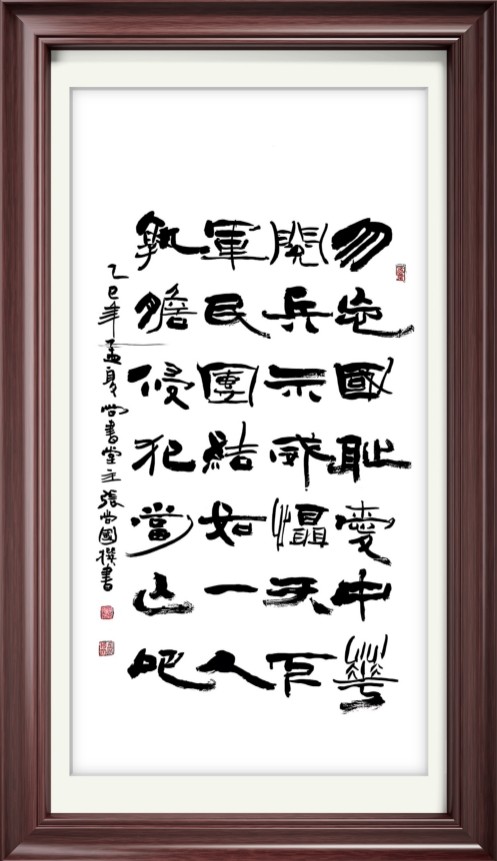 勿忘國耻愛中華
閱兵示威懾天下
軍民團結如一人
孰膽侵犯當亡吧
乙巳年孟夏尚書堂主張尚國撰書